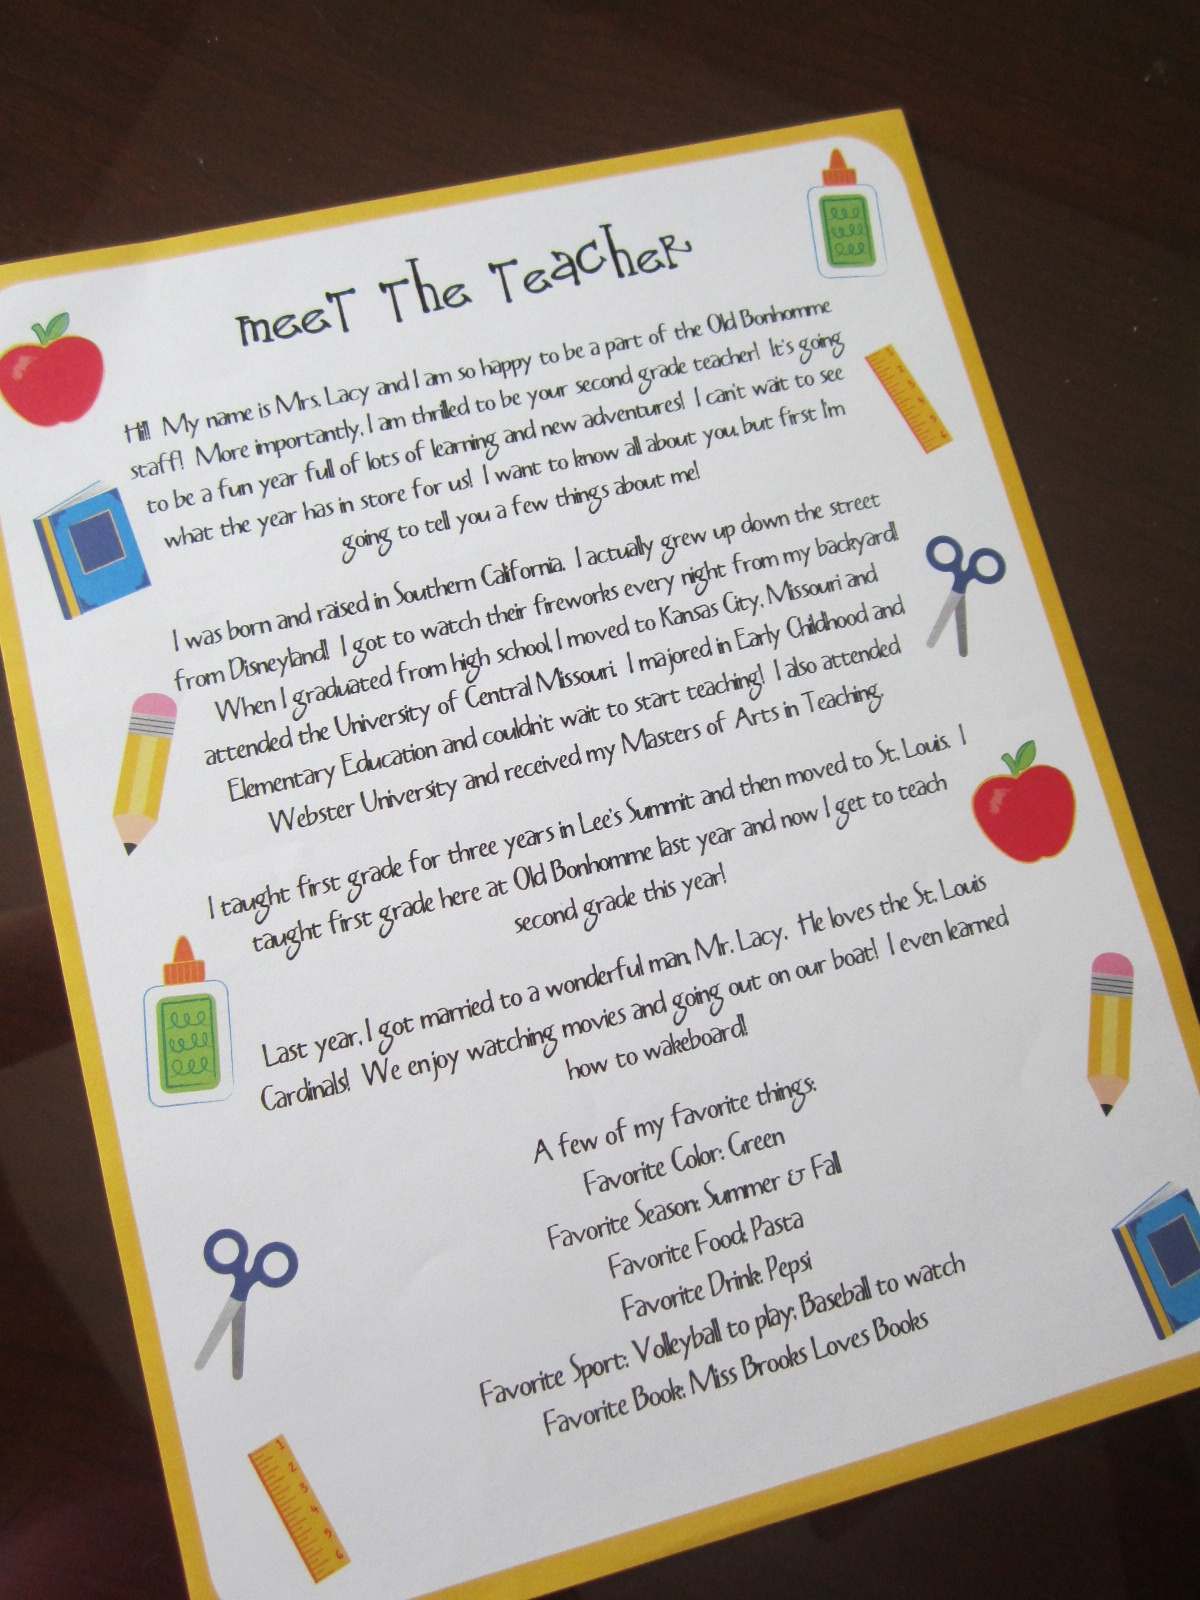 meeT The Teacher
Hi!! My name is Mrs. Lacy and I am so happy to be a part of the Old Bonhomme
staff! More importantly, I am thrilled to be your second grade teacher! It's going
to be a fun year full of lots of learning and new adventures! I can't wait to see
what the year has in store for us! I want to know all about you, but first I'm
going to tell you a few things about me!
I was born and raised in Southern California. I actually grew up down the street
from Disneyland! I got to watch their fireworks every night from my backyard!
When I graduated from high school, I moved to Kansas City, Missouri and
attended the University of Central Missouri. I majored in Early Childhood and
Elementary Education and couldn't wait to start teaching! I also attended
Webster University and received my Masters of Arts in Teaching.
I taught first grade for three years in Lee's Summit and then moved to St. Louis. I
taught first grade here at Old Bonhomme last year and now I get to teach
second grade this year!
Last year, I got married to a wonderful man, Mr. Lacy. He loves the St. Louis
Cardinals! We enjoy watching movies and going out on our boat! I even learned
how to wakeboard!
A few of my favorite things:
Favorite Color: Green
Favorite Season: Summer & Fall
Favorite Food: Pasta
Favorite Drink: Pepsi
Favorite Sport: Volleyball to play; Baseball to watch
Favorite Book: Miss Brooks Loves Books
1
2
3
4
5
6